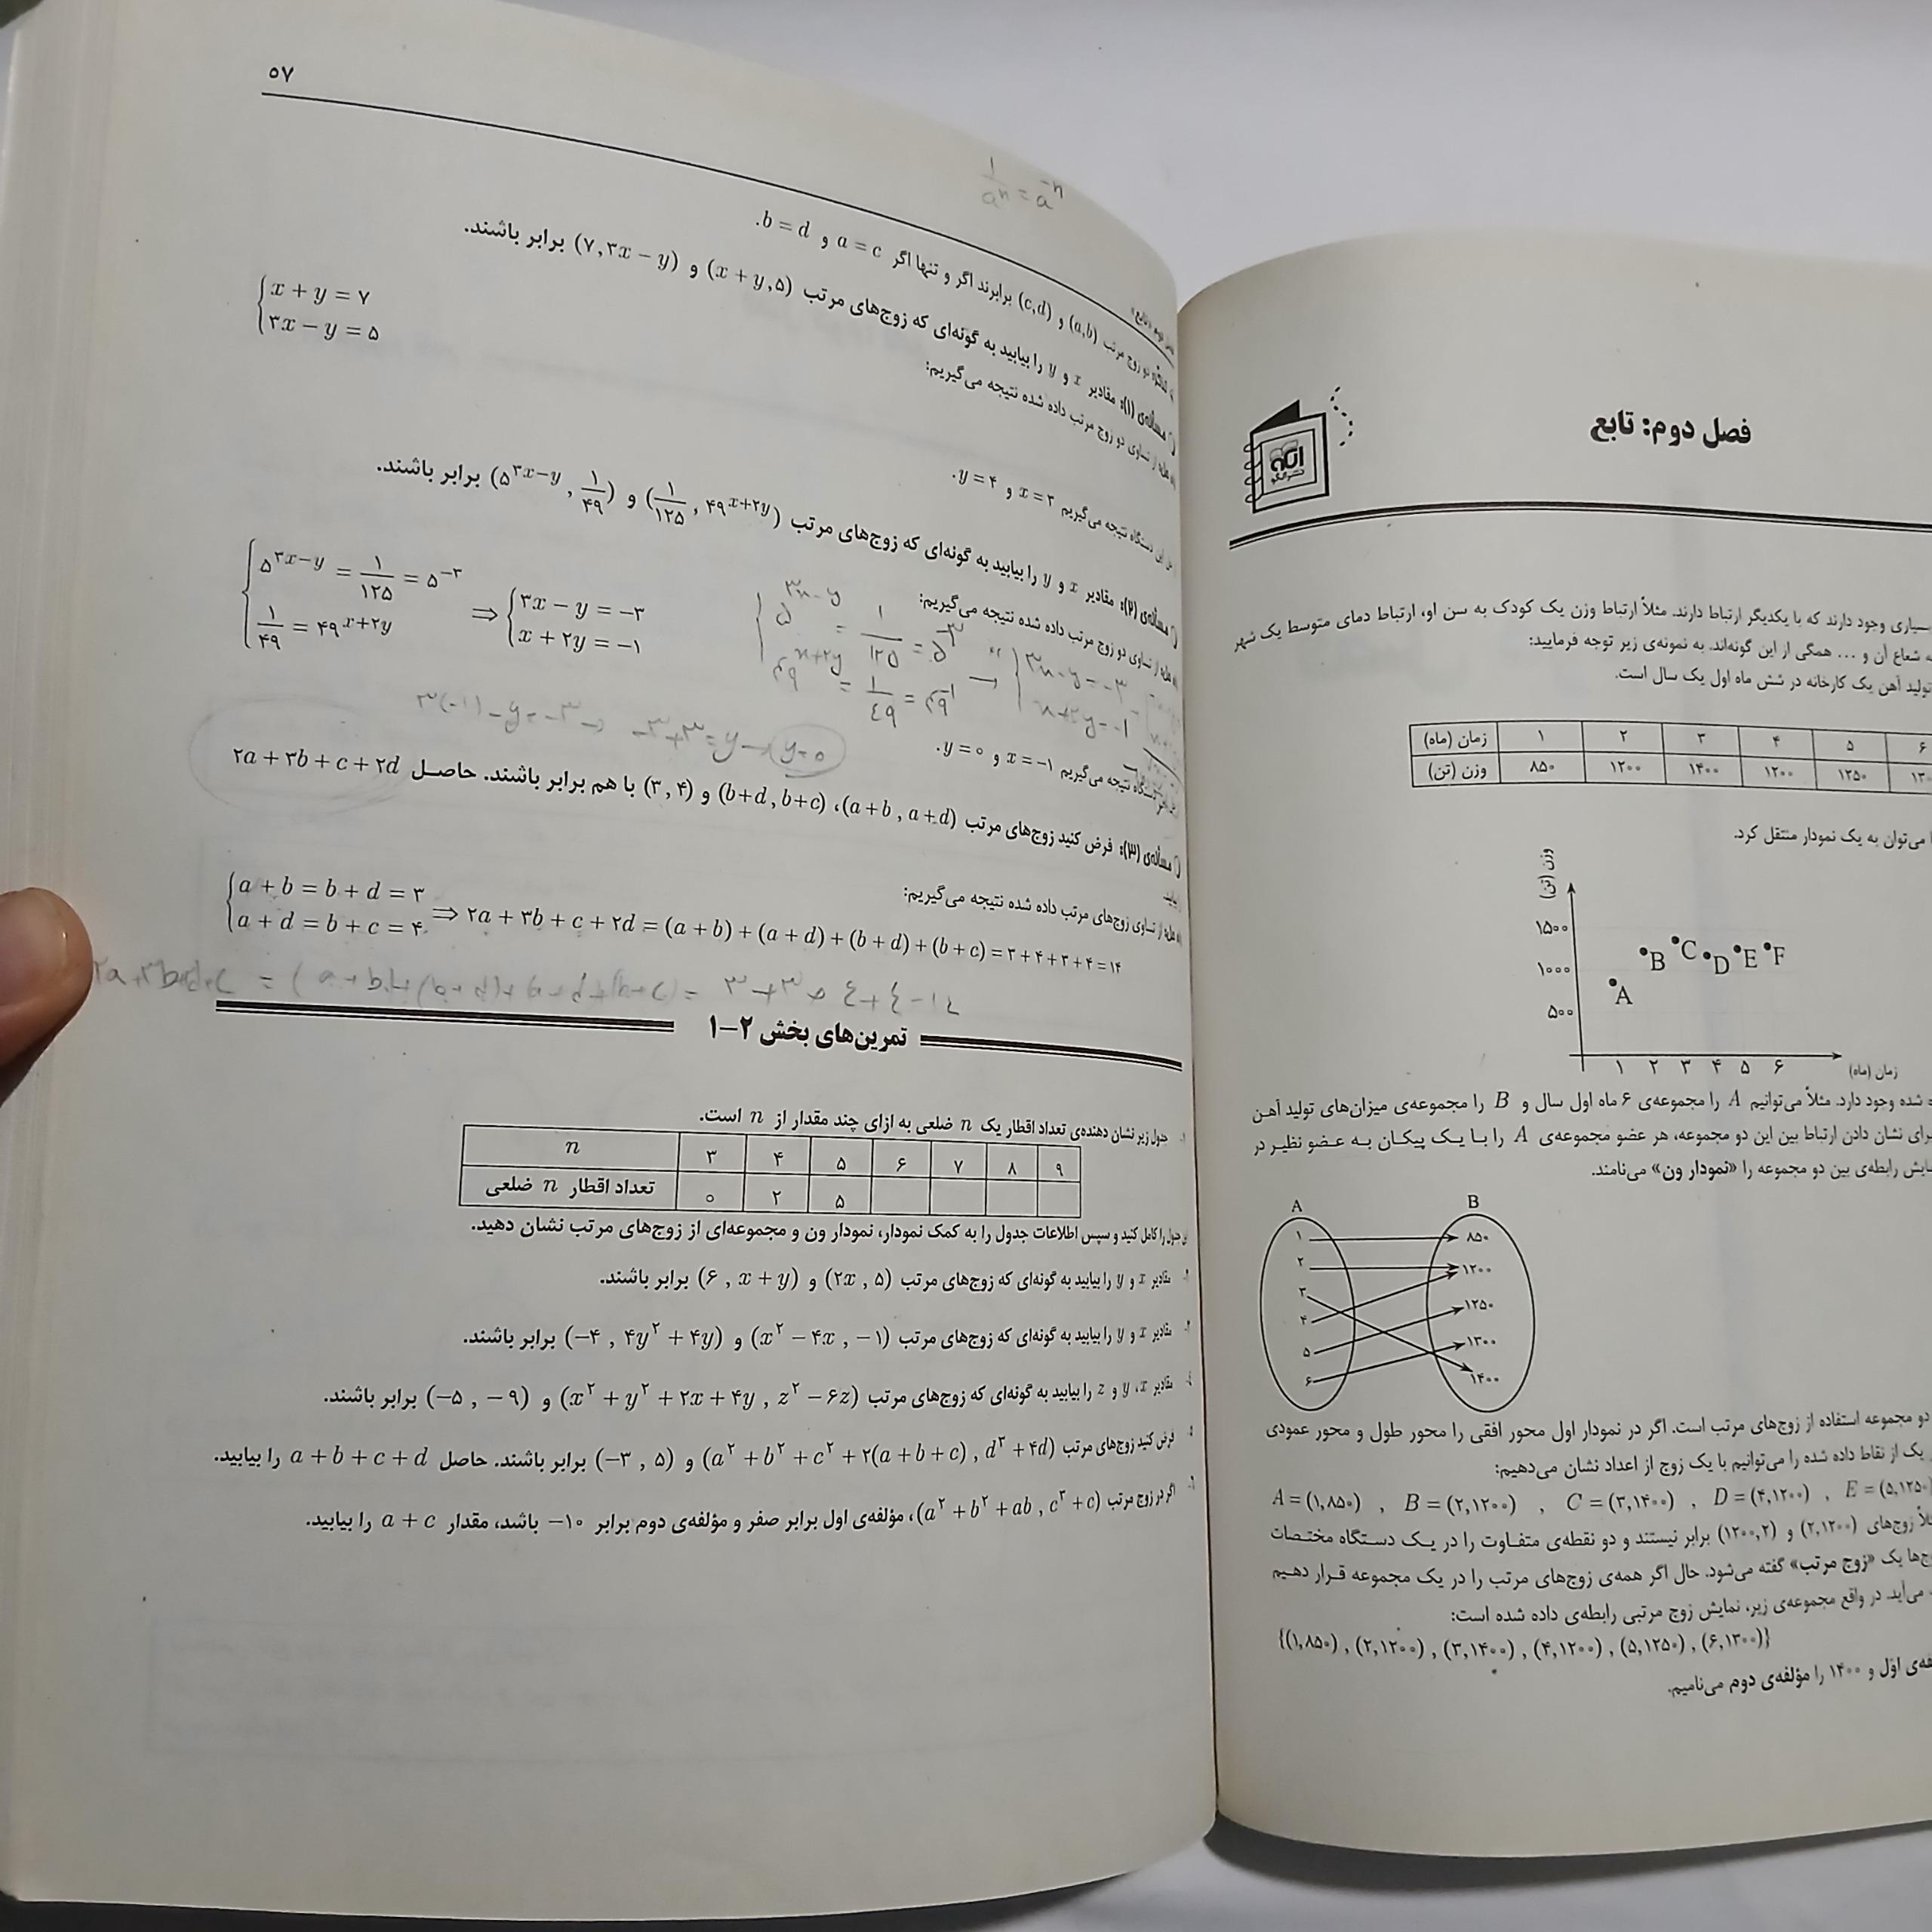 فصل دوم: تابع
سیاری وجود دارند که با یکدیگر ارتباط دارند. مثلاً ارتباط وزن یک کودک به سن او، ارتباط دمای متوسط یک شهر
شعاع آن و ... همگی از این گونه‌اند. به نمونه‌ی زیر توجه فرمایید:
تولید آهن یک کارخانه در شش ماه اول یک سال است.
زمان (ماه) ۱ ۲ ۳ ۴ ۵ ۶
وزن (تن) ۸۵۰ ۱۲۰۰ ۱۴۰۰ ۱۲۰۰ ۱۲۵۰
می‌توان به یک نمودار منتقل کرد.
وزن (تن)
۱۵۰۰
۱۰۰۰
۵۰۰
A B C D E F
۱ ۲ ۳ ۴ ۵ ۶
زمان (ماه)
شده وجود دارد. مثلاً می‌توانیم A را مجموعه‌ی ۶ ماه اول سال و B را مجموعه‌ی میزان‌های تولید آهن
رای نشان دادن ارتباط بین این دو مجموعه، هر عضو مجموعه‌ی A را با یک پیکان به عضو نظیر در
مایش رابطه‌ی بین دو مجموعه را «نمودار ون» می‌نامند.
A B
۱ ۲ ۳ ۴ ۵ ۶
۸۵۰ ۱۲۰۰ ۱۲۵۰ ۱۳۰۰ ۱۴۰۰
دو مجموعه استفاده از زوج‌های مرتب است. اگر در نمودار اول محور افقی را محور طول و محور عمودی
یک از نقاط داده شده را می‌توانیم با یک زوج از اعداد نشان می‌دهیم:
A = (۱,۸۵۰) , B = (۲,۱۲۰۰) , C = (۳,۱۴۰۰) , D = (۴,۱۲۰۰) , E = (۵,۱۲۵۰
زوج‌های (۲,۱۲۰۰) و (۱۲۰۰,۲) برابر نیستند و دو نقطه‌ی متفاوت را در یک دستگاه مختصات
ج‌ها یک «زوج مرتب» گفته می‌شود. حال اگر همه‌ی زوج‌های مرتب را در یک مجموعه قرار دهیم
می‌آید. در واقع مجموعه‌ی زیر، نمایش زوج مرتبی رابطه‌ی داده شده است:
{(۱,۸۵۰) , (۲,۱۲۰۰) , (۳,۱۴۰۰) , (۴,۱۲۰۰) , (۵,۱۲۵۰) , (۶,۱۳۰۰)}
فه‌ی اول و ۱۴۰۰ را مؤلفه‌ی دوم می‌نامیم.
۵۷
1/aⁿ = a⁻ⁿ
دو زوج مرتب (a,b) و (c,d) برابرند اگر و تنها اگر a = c و b = d.
مسأله‌ی (۱): مقادیر x و y را بیابید به گونه‌ای که زوج‌های مرتب (x + y,۵) و (۷,۳x − y) برابر باشند.
از تساوی دو زوج مرتب داده شده نتیجه می‌گیریم:
x + y = ۷
۳x − y = ۵
این دستگاه نتیجه می‌گیریم x = ۳ و y = ۴.
مسأله‌ی (۲): مقادیر x و y را بیابید به گونه‌ای که زوج‌های مرتب (۱/۱۲۵ , ۴۹^(x+۲y)) و (۵^(۳x−y) , ۱/۴۹) برابر باشند.
از تساوی دو زوج مرتب داده شده نتیجه می‌گیریم:
۵^(۳x−y) = ۱/۱۲۵ = ۵^(−۳)
۱/۴۹ = ۴۹^(x+۲y)
⇒ ۳x − y = −۳
x + ۲y = −۱
دستگاه نتیجه می‌گیریم x = −۱ و y = ۰.
مسأله‌ی (۳): فرض کنید زوج‌های مرتب (a+b , a+d)، (b+d , b+c) و (۳, ۴) با هم برابر باشند. حاصل ۲a + ۳b + c + ۲d
بیابید.
از تساوی زوج‌های مرتب داده شده نتیجه می‌گیریم:
a + b = b + d = ۳
a + d = b + c = ۴
⇒ ۲a + ۳b + c + ۲d = (a + b) + (a + d) + (b + d) + (b + c) = ۳ + ۴ + ۳ + ۴ = ۱۴
تمرین‌های بخش ۲–۱
جدول زیر نشان دهنده‌ی تعداد اقطار یک n ضلعی به ازای چند مقدار از n است.
n ۳ ۴ ۵ ۶ ۷ ۸ ۹
تعداد اقطار n ضلعی ۰ ۲ ۵
جدول را کامل کنید و سپس اطلاعات جدول را به کمک نمودار، نمودار ون و مجموعه‌ای از زوج‌های مرتب نشان دهید.
مقادیر x و y را بیابید به گونه‌ای که زوج‌های مرتب (۲x , ۵) و (۶ , x + y) برابر باشند.
مقادیر x و y را بیابید به گونه‌ای که زوج‌های مرتب (x² − ۴x , −۱) و (−۴ , ۴y² + ۴y) برابر باشند.
مقادیر x، y و z را بیابید به گونه‌ای که زوج‌های مرتب (x² + y² + ۲x + ۴y , z² − ۶z) و (−۵ , −۹) برابر باشند.
فرض کنید زوج‌های مرتب (a² + b² + c² + ۲(a + b + c) , d³ + ۴d) و (−۳ , ۵) برابر باشند. حاصل a + b + c + d را بیابید.
اگر در زوج مرتب (a² + b² + ab , c³ + c)، مؤلفه‌ی اول برابر صفر و مؤلفه‌ی دوم برابر ۱۰− باشد، مقدار a + c را بیابید.